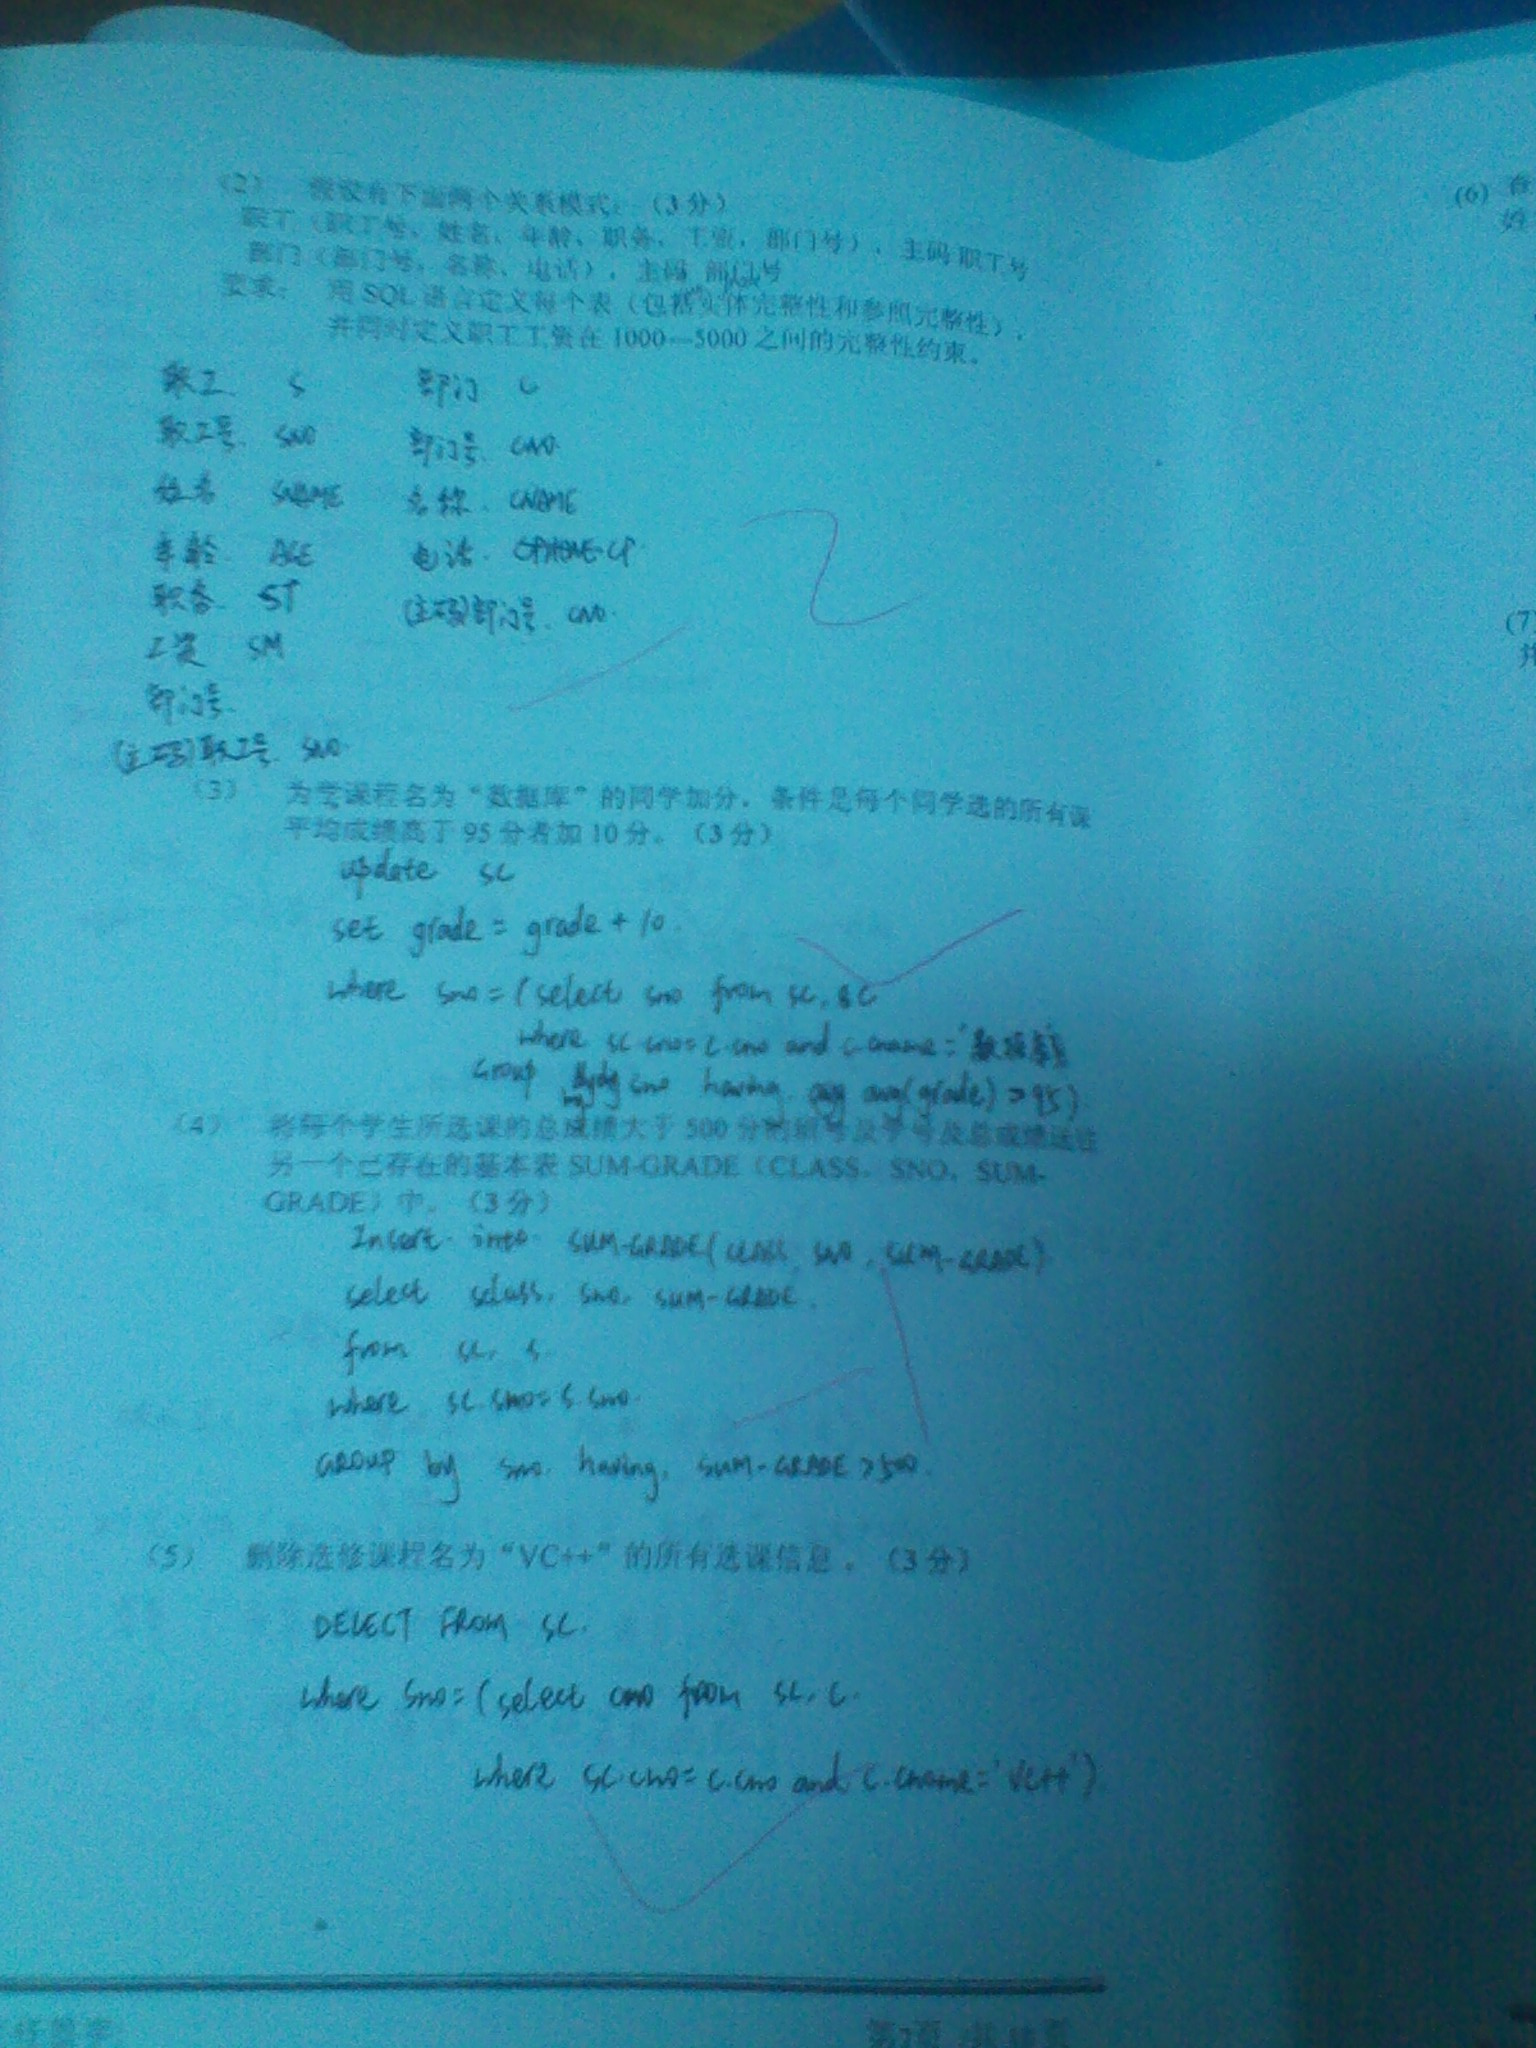 (2) 假设有下面两个关系模式：（3分）
职工（职工号，姓名，年龄，职务，工资，部门号），主码 职工号
部门（部门号，名称，电话），主码 部门号
要求： 用SQL语言定义每个表（包括实体完整性和参照完整性），
并同时定义职工工资在1000—5000之间的完整性约束。
职工 S 部门 C
职工号 SNO 部门号 CNO
姓名 SNAME 名称 CNAME
年龄 AGE 电话 CP
职务 ST (主码)部门号 CNO
工资 SM
部门号
(主码)职工号 SNO
(3) 为学课程名为“数据库”的同学加分，条件是每个同学选的所有课
平均成绩高于95分者加10分。（3分）
update sc
set grade = grade + 10
where sno = (select sno from sc, c
where sc.cno = c.cno and c.cname = '数据库'
Group by sno having avg(grade) > 95)
(4) 将每个学生所选课的总成绩大于500分的班号及学号及总成绩送往
另一个已存在的基本表SUM-GRADE（CLASS，SNO，SUM-
GRADE）中。（3分）
Insert into SUM-GRADE(CLASS, SNO, SUM-GRADE)
select sclass, sno, SUM-GRADE
from sc, s
where sc.sno = s.sno
GROUP by sno having SUM-GRADE > 500
(5) 删除选修课程名为“VC++”的所有选课信息。（3分）
DELECT FROM SC.
where sno = (select cno from sc, c
where sc.cno = c.cno and c.cname = 'VC++')
(6)
姓
(7)
并